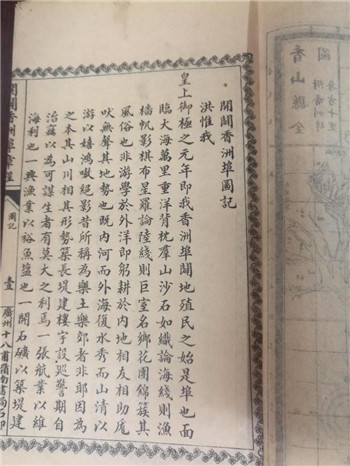 開闢香洲埠圖記
洪惟我
皇上御極之元年即我香洲埠開地殖民之始是埠也面
臨大海萬里重洋背枕羣山沙石如織論海綫則漁
檣帆影棋布星羅論陸綫則巨室名鄉花團錦簇其
風俗也非游學於外洋即躬耕於內地相友相助尨
吠無聲其地勢也既內河而外海復水秀而山清以
游以嬉鴻嗷絕影昔所稱為樂土樂郊者非耶因為
之本其山川相其形勢築長堤建樓宇設巡警期自
治庶以為可謀生者有莫大之利焉一張航業以維
海利也一興漁業以裕魚鹽也一開石礦以築堤建
開闢香洲埠章程
圖記
壹
廣州十八甫嶺南書局石印
圖
香山縣全
每方十里
附